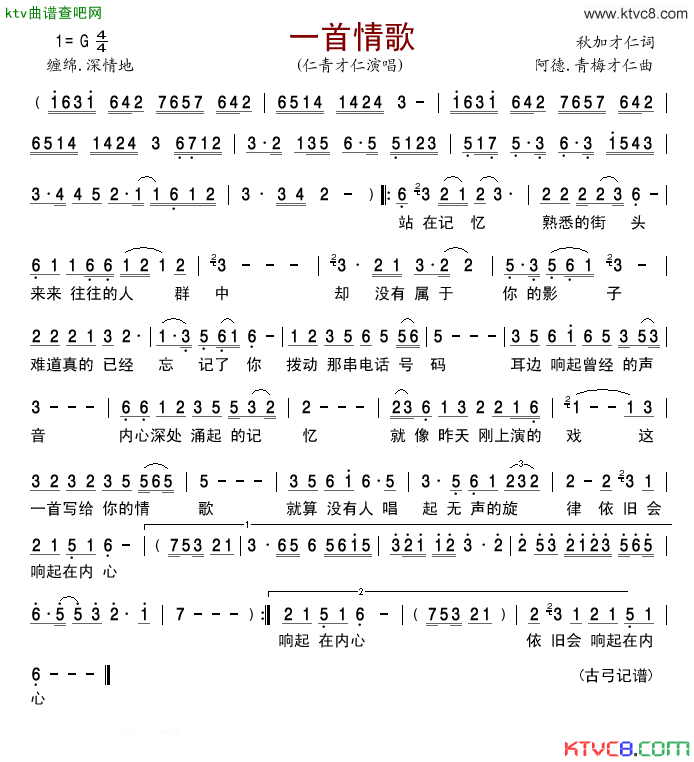 ktv曲谱查吧网
www.ktvc8.com
1= G 4/4 一首情歌 秋加才仁词
缠绵.深情地 (仁青才仁演唱) 阿德.青梅才仁曲
( 1631 642 7657 642 | 6514 1424 3 - | 1631 642 7657 642 |
6514 1424 3 6712 | 3·2 135 6·5 5123 | 517 5·3 6·3 1543 |
3·4 4 5 2·1 1 6 1 2 | 3· 3 4 2 - ) ‖: 6 2 3 2 1 2 3· | 2 2 2 2 3 6 - |
站 在记 忆 熟悉的街 头
6 1 1 6 6 1 2 1 2 | 2 3 - - | 2 3· 2 1 3·2 2 | 5·3 5 6 1 - |
来来 往往的人 群 中 却 没有 属 于 你 的影 子
2 2 2 1 3 2· | 1·3 5 6 1 6 - | 2 2 3 5·6 5 6 | 5 - - - | 3 5 6 1 6 5 3 5 3 |
难道真的 已经 忘 记了 你 拨动 那串电话 号 码 耳边 响起曾经 的声
3 - - - | 6 6 1 2 3 5 5 3 2 | 2 - - - | 2 3 6 1 3 2 2 1 6 | 2 1 - - 1 3 |
音 内心深处 涌起 的记 忆 就 像 昨天 刚上演的 戏 这
3 2 3 2 1 3 5 5 6 5 | 5 - - - | 3 5 6 1 6·5 | 3·5 6 1 2 3 2 | 2 - 2 3 1 |
3
一首写给 你的情 歌 就算 没有人 唱 起 无 声的旋 律 依 旧 会
1
2 1 5 1 6 - | ( 753 21 | 3·65 6 5615 | 3321 12 3·2 | 2 53 2123 565 |
响起在内 心
6·5 5 3 2·1 | 7 - - ) :‖ 2 1 5 1 6 - | ( 753 21 ) | 2 2 3 1 2 1 5 1 |
2
响起 在内心 依 旧会 响起在内
6 - - ‖ (古弓记谱)
心
KTVC8.COM